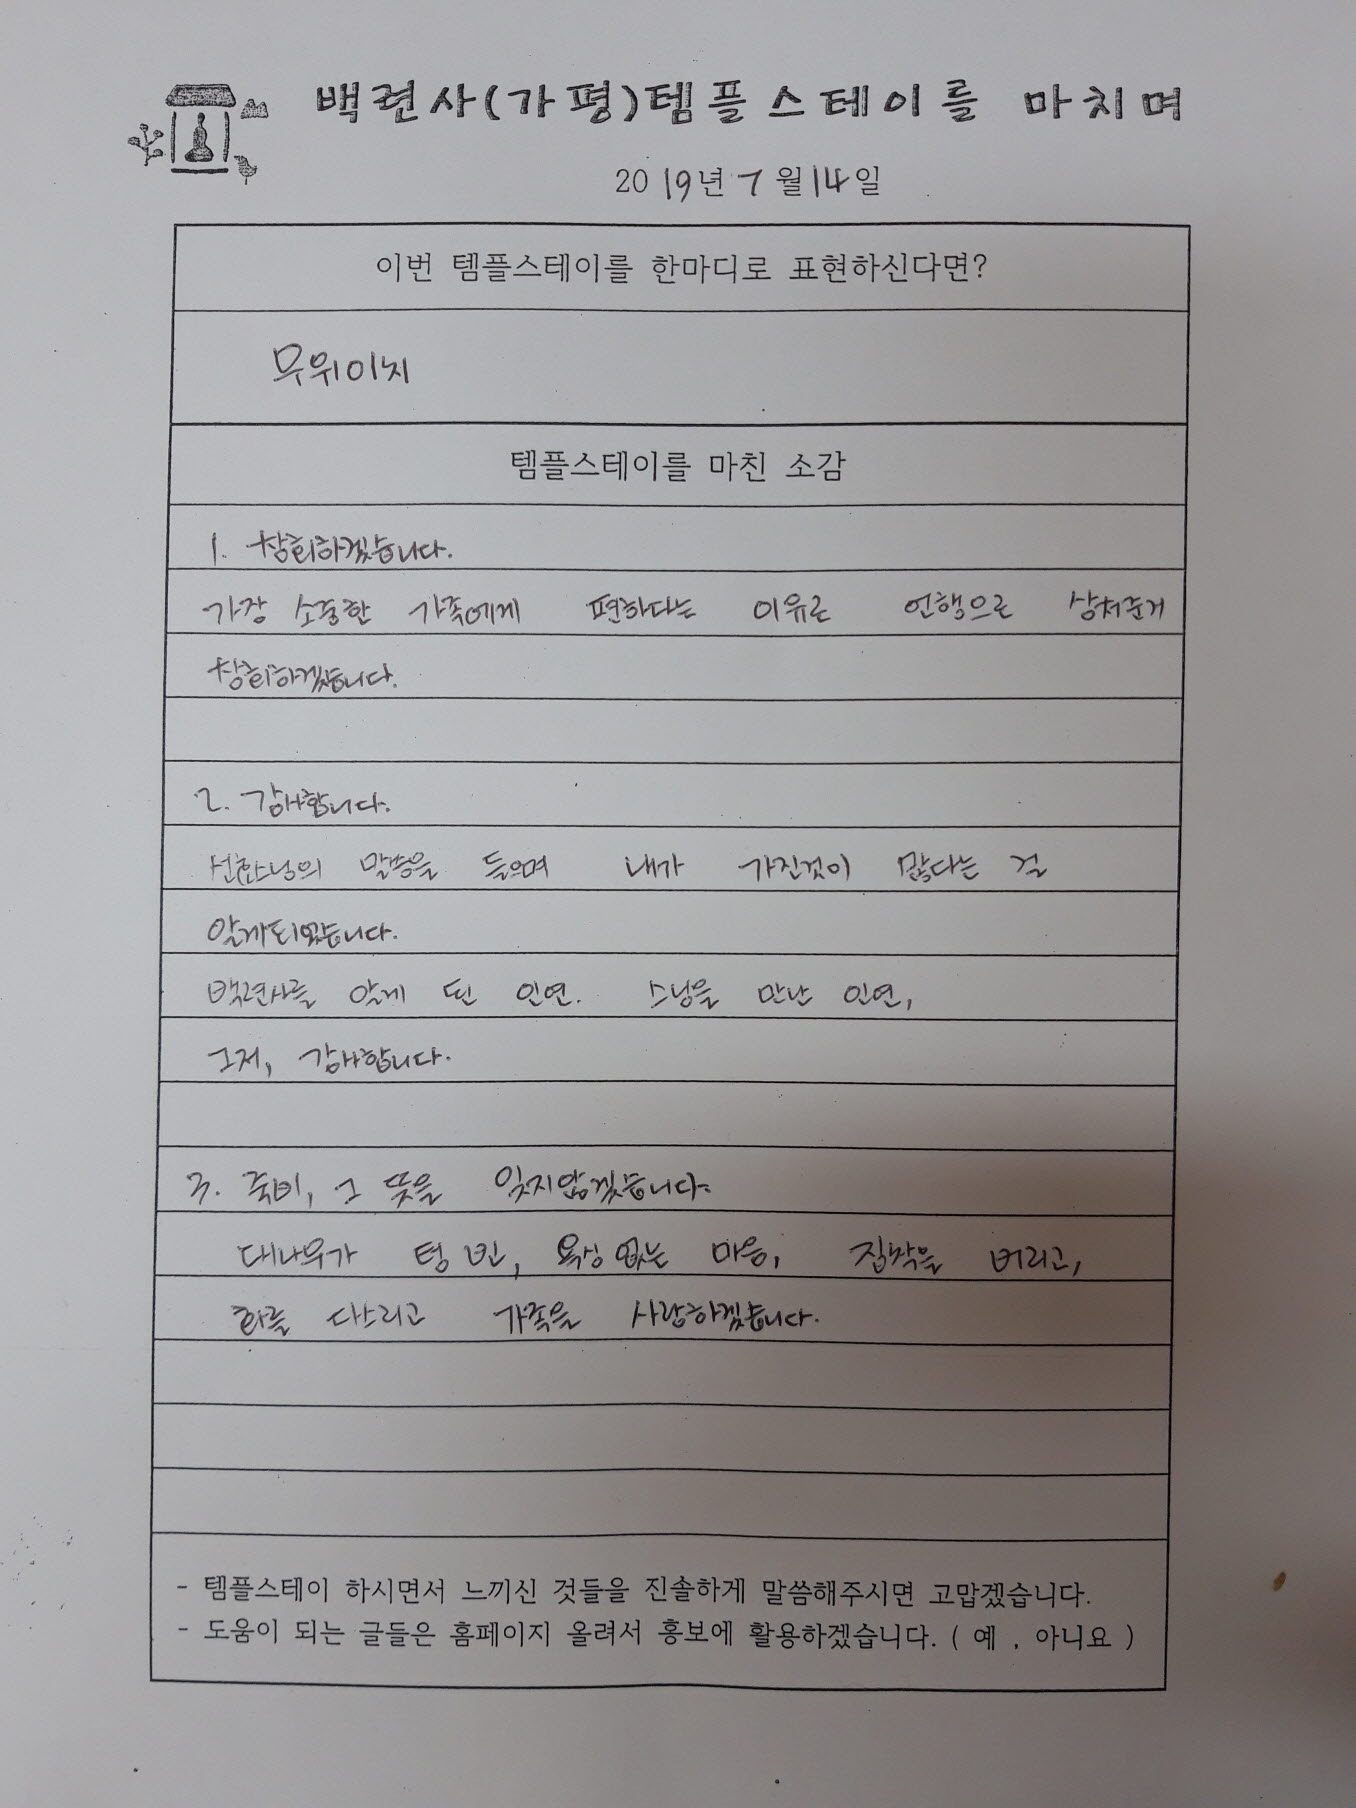 백련사(가평)템플스테이를 마치며
2019년 7월14일
이번 템플스테이를 한마디로 표현하신다면?
무위이치
템플스테이를 마친 소감
1. 참회하겠습니다.
가장 소중한 가족에게 편하다는 이유로 언행으로 상처준거
참회하겠습니다.
2. 감사합니다.
말씀을 들으며 내가 가진것이 많다는 걸
알게되었습니다.
백련사를 알게 된 인연. 스님을 만난 인연,
그저, 감사합니다.
3. 죽비, 그 뜻을 잊지않겠습니다.
대나무가 텅 빈, 욕심 없는 마음, 집착을 버리고,
화를 다스리고 가족을 사랑하겠습니다.
- 템플스테이 하시면서 느끼신 것들을 진솔하게 말씀해주시면 고맙겠습니다.
- 도움이 되는 글들은 홈페이지 올려서 홍보에 활용하겠습니다. ( 예 , 아니요 )